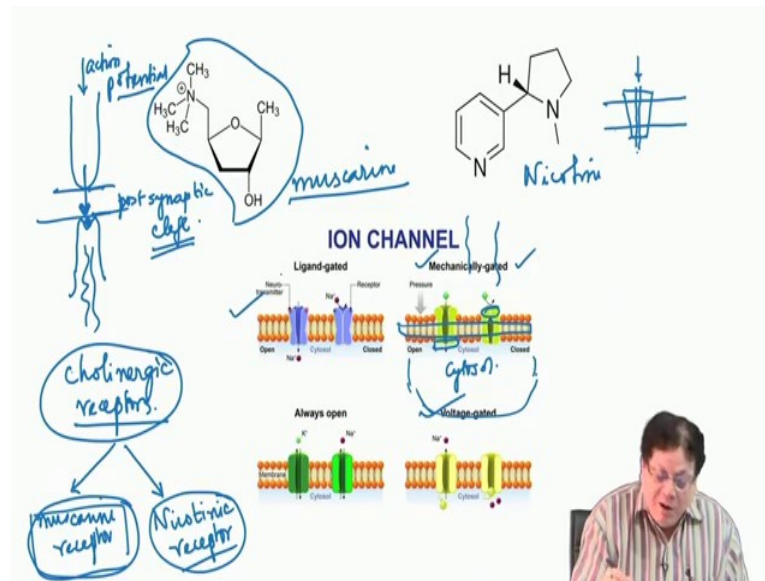 action
potential
post synaptic
cleft.
CH3
N
H3C
H3C
O
CH3
OH
muscarine
H
N
N
Nicotin
ION CHANNEL
Ligand-gated
Neuro-
transmitter
Na+
Receptor
Open
Cytosol
Closed
Na+
Mechanically-gated
Pressure
Open
Cytosol
Closed
Cytosol.
Always open
K+
Na+
Membrane
Cytosol
Voltage-gated
Na+
Cytosol
Cholinergic
receptors.
muscarine
receptor
Nicotinic
receptor